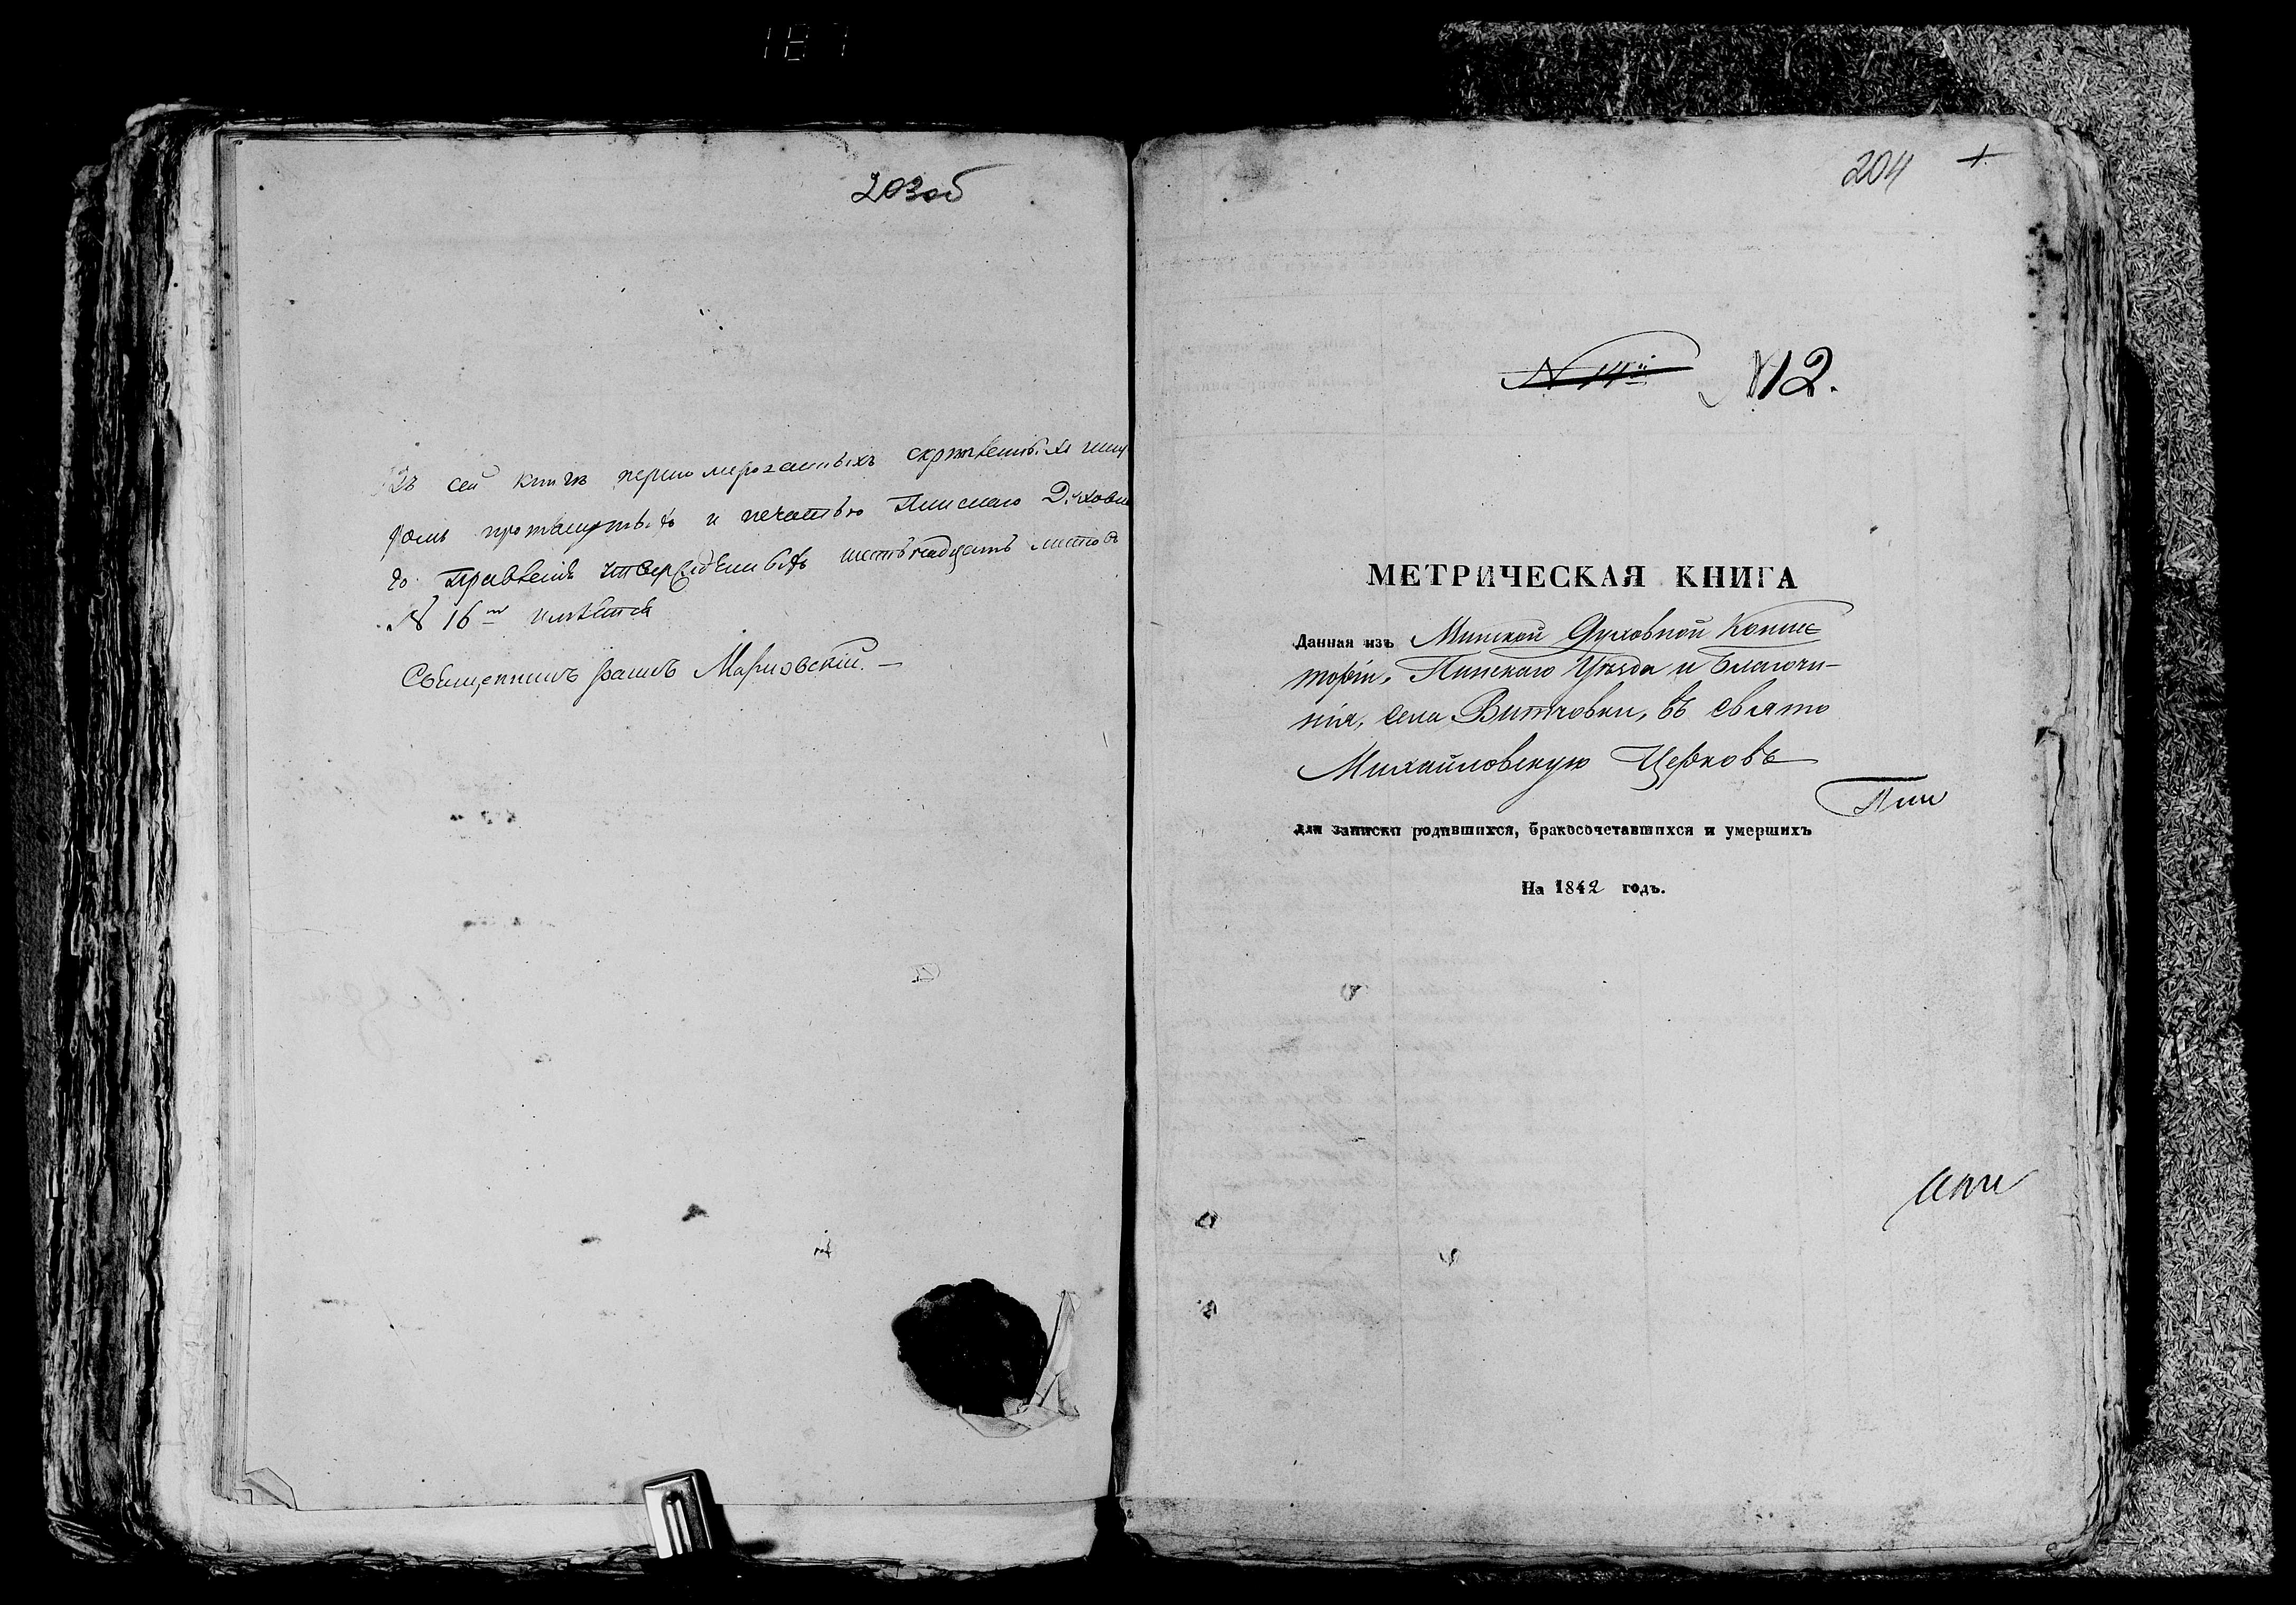 187
203об
Въ сей книгѣ перномерованныхъ скрѣпленныхъ шну-
ромъ протянутыхъ и печатью Пинскаго Духовна-
го Правленія утвержденныхъ шестьнадцать листовъ
№ 16ть имѣется
Священникъ Іоаннъ Марковскій. —
204 1.
№ 14й №12.
МЕТРИЧЕСКАЯ КНИГА
Данная изъ Минской Духовной Консис
торіи, Пинскаго Уѣзда и Благочи-
нія, села Витчовки, въ Свято
Михайловскую Церковь
Пин
для записки родившихся, бракосочетавшихся и умершихъ
На 1842 годъ.